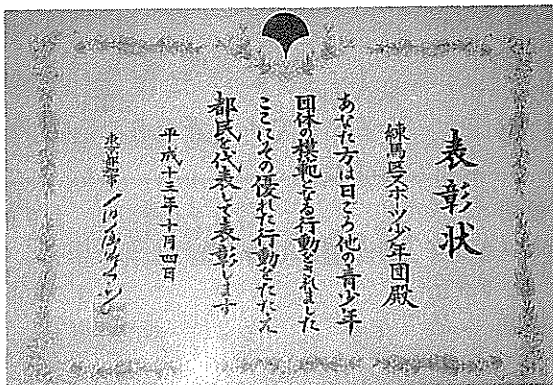 表彰状
練馬区スポーツ少年団殿
あなた方は日ごろ他の青少年
団体の模範となる行動をされました
ここにその優れた行動をたたえ
都民を代表して表彰します
平成十三年十月四日
東京都知事